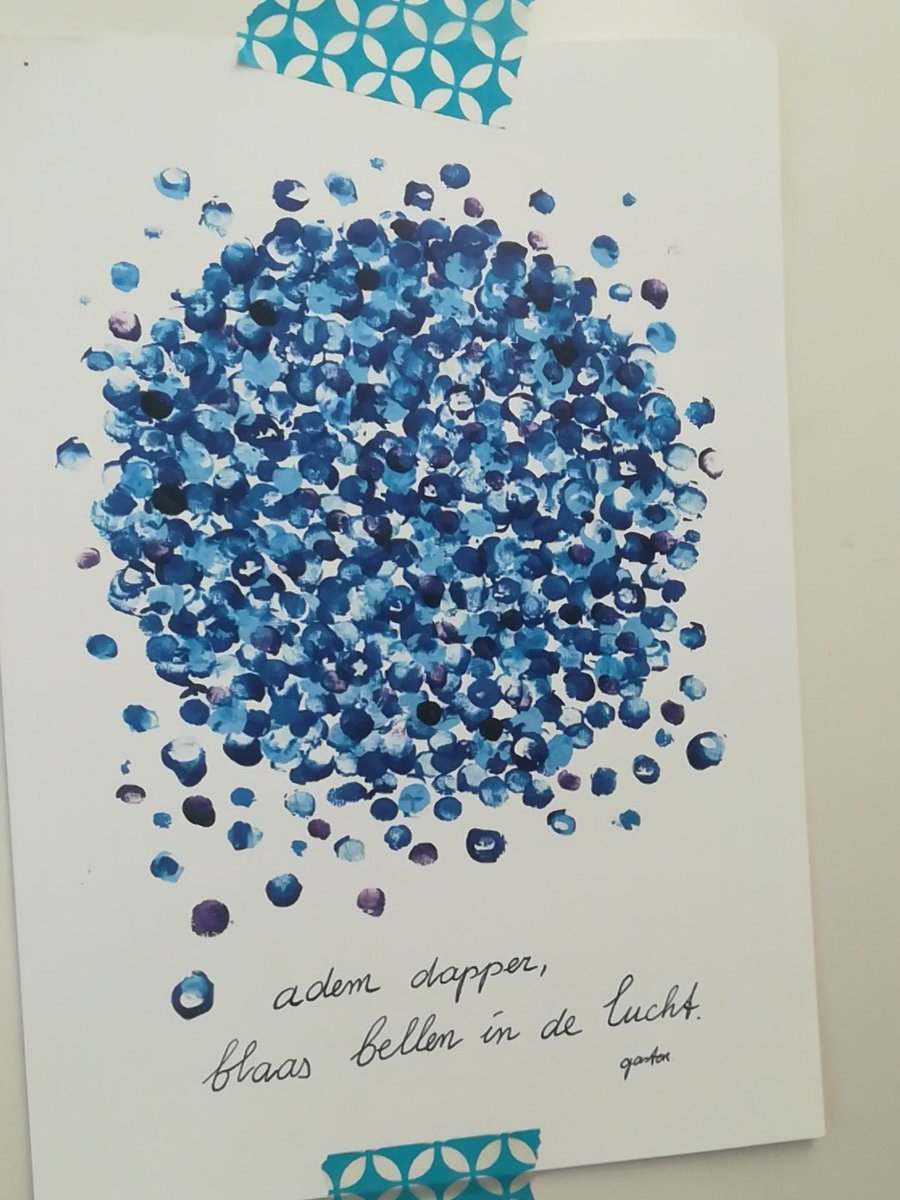 adem dapper,
blaas bellen in de lucht.
gaston.